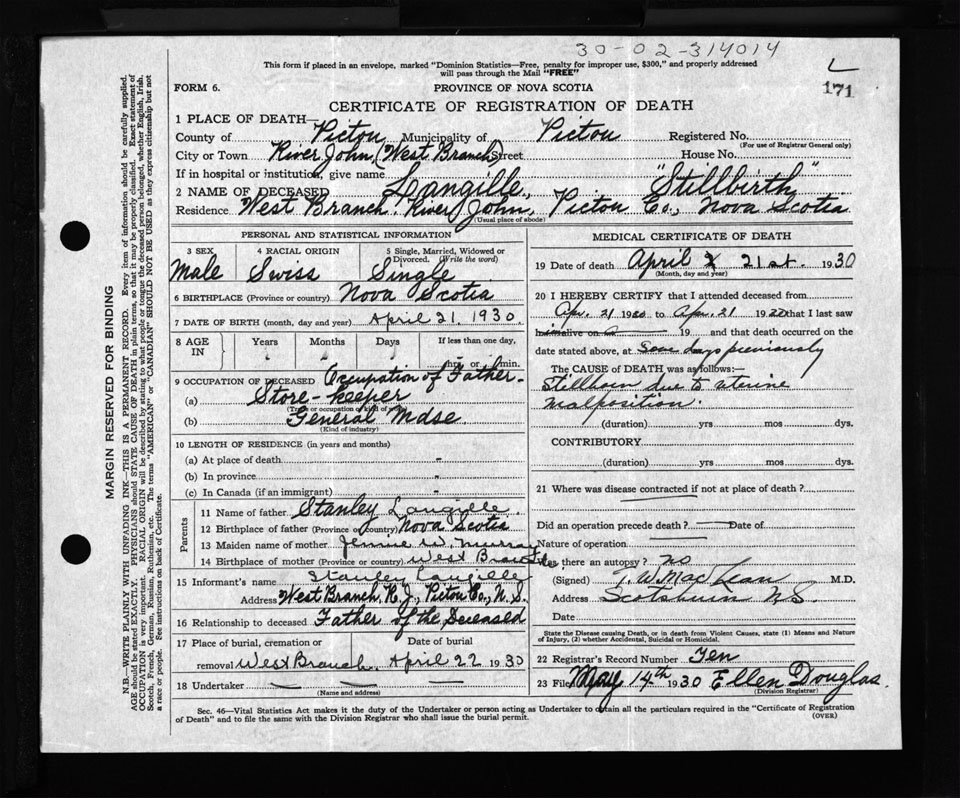 30-02-314014
This form if placed in an envelope, marked "Dominion Statistics—Free, penalty for improper use, $300," and properly addressed
will pass through the Mail "FREE"
L
171
FORM 6.
PROVINCE OF NOVA SCOTIA
CERTIFICATE OF REGISTRATION OF DEATH
1 PLACE OF DEATH—
County of Pictou Municipality of Pictou Registered No.
(For use of Registrar General only)
City or Town River John, (West Branch) Street House No.
If in hospital or institution, give name
2 NAME OF DECEASED Langille, "Stillbirth"
Residence West Branch, River John, Pictou Co., Nova Scotia
(Usual place of abode)
PERSONAL AND STATISTICAL INFORMATION
3 SEX 4 RACIAL ORIGIN 5 Single, Married, Widowed or Divorced. (Write the word)
Male Swiss Single
6 BIRTHPLACE (Province or country) Nova Scotia
7 DATE OF BIRTH (month, day and year) April 21, 1930.
8 AGE IN Years Months Days If less than one day,
hrs. or min.
9 OCCUPATION OF DECEASED Occupation of Father-
(a) Store-keeper
(Trade or occupation or kind of work)
(b) General Mdse.
(Kind of industry)
10 LENGTH OF RESIDENCE (in years and months)
(a) At place of death "
(b) In province "
(c) In Canada (if an immigrant) "
Parents
11 Name of father Stanley Langille.
12 Birthplace of father (Province or country) Nova Scotia
13 Maiden name of mother Jennie W. Murray
14 Birthplace of mother (Province or country) West Branch
15 Informant's name Stanley Langille
Address West Branch, R. J., Pictou Co., N. S.
16 Relationship to deceased Father of the Deceased
17 Place of burial, cremation or Date of burial
removal West Branch. April 22 1930
18 Undertaker — — —
(Name and address)
MEDICAL CERTIFICATE OF DEATH
19 Date of death April 21st. 1930
(Month, day and year)
20 I HEREBY CERTIFY that I attended deceased from
Apr. 21 1930 to Apr. 21 1930 that I last saw
him alive on 19 and that death occurred on the
date stated above, at some days previously
The CAUSE of DEATH was as follows:—
Stillborn due to uterine
malposition.
(duration) yrs mos dys.
CONTRIBUTORY
(duration) yrs. mos. dys.
21 Where was disease contracted if not at place of death?
Did an operation precede death? — Date of
Nature of operation
Was there an autopsy? No
(Signed) M.D.
Address Scotsburn N.S.
Date
State the Disease causing Death, or in death from Violent Causes, state (1) Means and Nature
of Injury, (2) whether Accidental, Suicidal or Homicidal.
22 Registrar's Record Number Ten
23 Filed May 14th 1930 Ellen Douglas.
(Division Registrar)
Sec. 46—Vital Statistics Act makes it the duty of the Undertaker or person acting as Undertaker to obtain all the particulars required in the "Certificate of Registration
of Death" and to file the same with the Division Registrar who shall issue the burial permit.
(OVER)
MARGIN RESERVED FOR BINDING
N.B.—WRITE PLAINLY WITH UNFADING INK—THIS IS A PERMANENT RECORD. Every item of information should be carefully supplied.
AGE should be stated EXACTLY. PHYSICIANS should STATE CAUSE OF DEATH in plain terms, so that it may be properly classified. Exact statement of
OCCUPATION is very important. RACIAL ORIGIN will be described by stating to what people or tongue the deceased person belonged, whether English, Irish,
Scotch, French, German, Russian, Ruthenian, etc. The terms "AMERICAN" or "CANADIAN" SHOULD NOT BE USED as they express citizenship but not
a race or people. See instructions on back of Certificate.